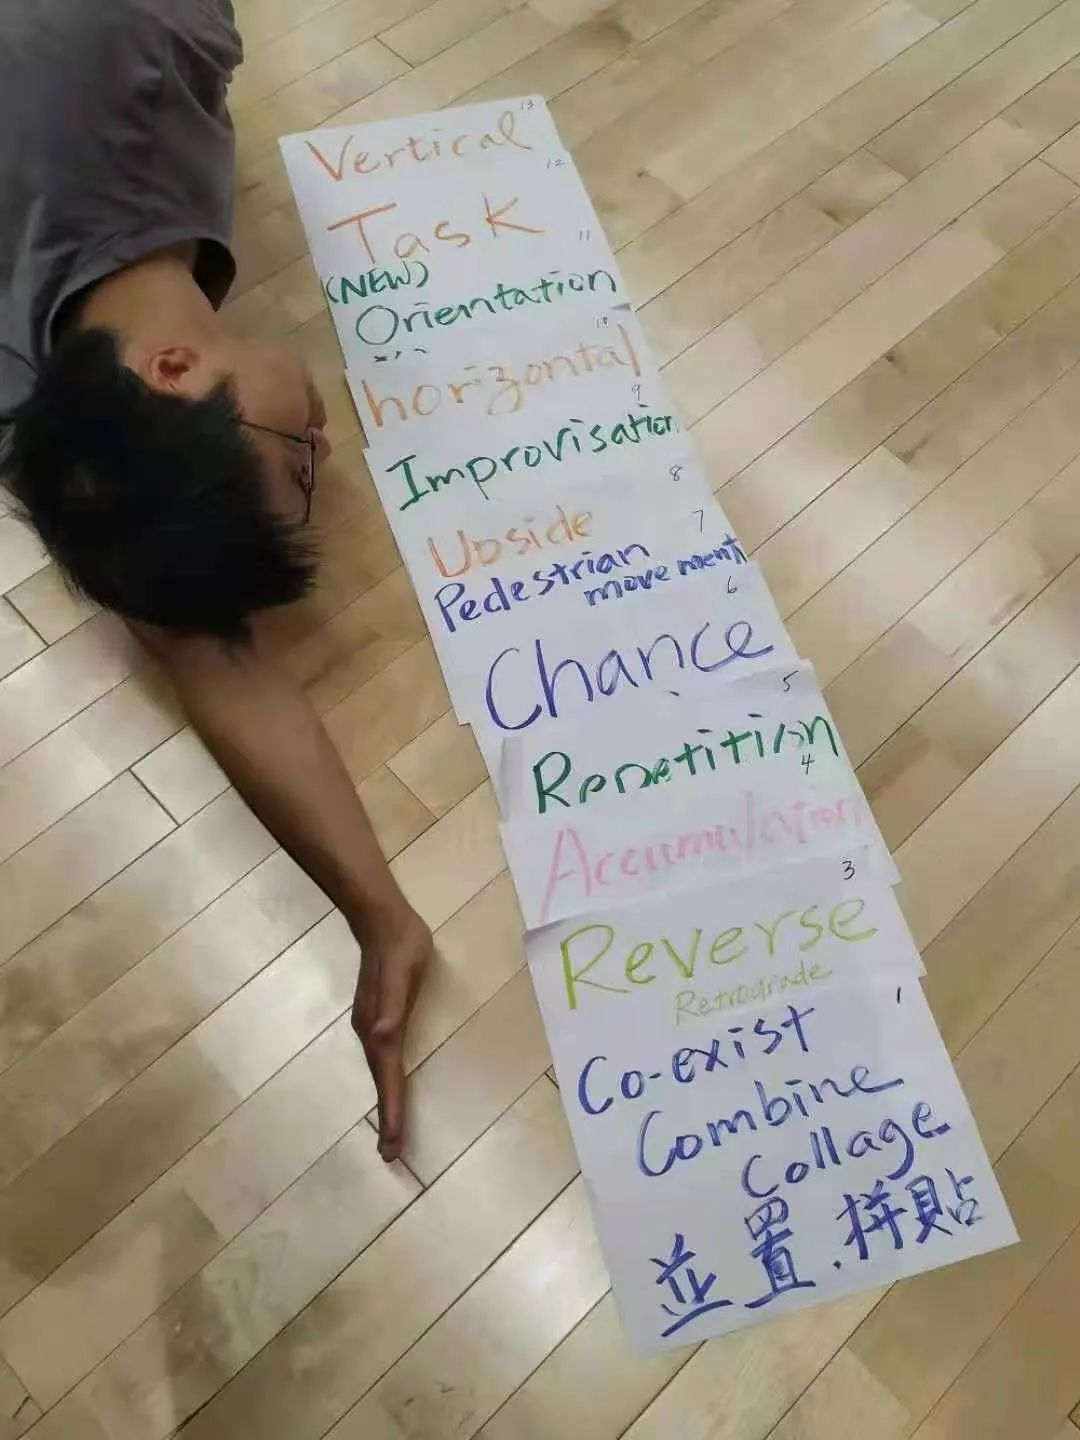 13
Vertical
12
Task
11
(NEW)
Orientation
10
horizontal
9
Improvisation
8
Upside
7
Pedestrian
movement
6
Chance
5
Repetition
4
Accumulation
3
Reverse
Retrograde
1
Co-exist
Combine
Collage
並置.拼貼